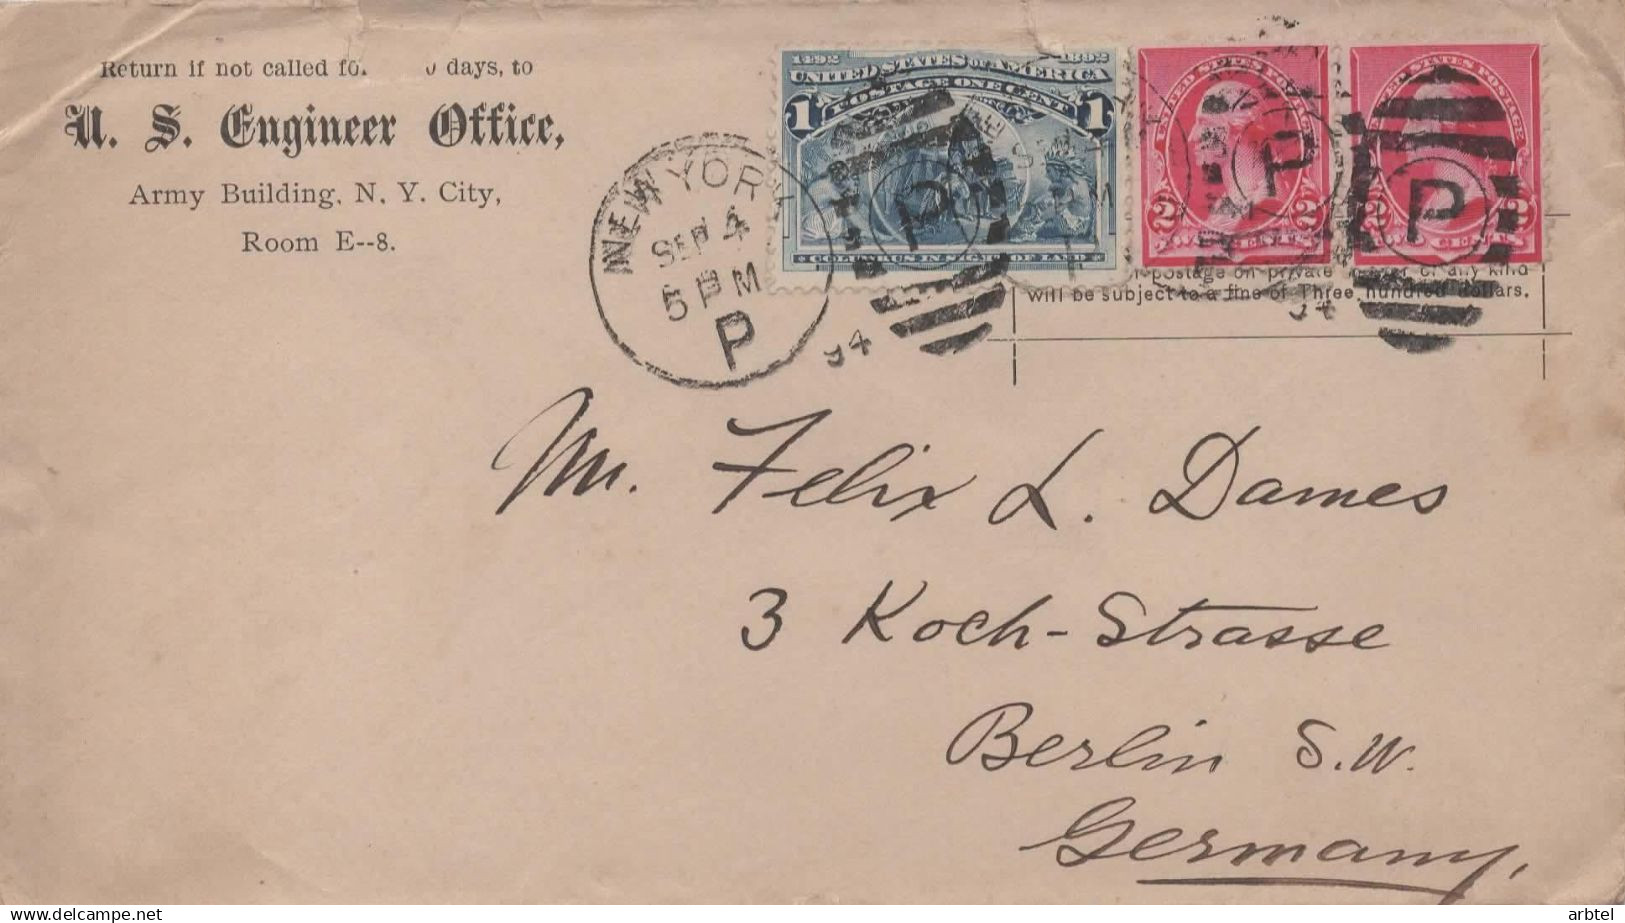 Return if not called days, to
U. S. Engineer Office,
Army Building, N. Y. City,
Room E--8.
1492 1892
UNITED STATES OF AMERICA
POSTAGE ONE CENT
1 1
COLUMBUS IN SIGHT OF LAND
UNITED STATES POSTAGE
2 2
TWO CENTS
STATES POSTAGE
2
TWO CENTS
NEW YORK
SEP 4
5 PM
P
94
P
P
P
94
postage on private of any kind
will be subject to a fine of Three hundred dollars.
Mr. Felix L. Dames
3 Koch-Strasse
Berlin S.W.
Germany.
www.delcampe.net
arbtel